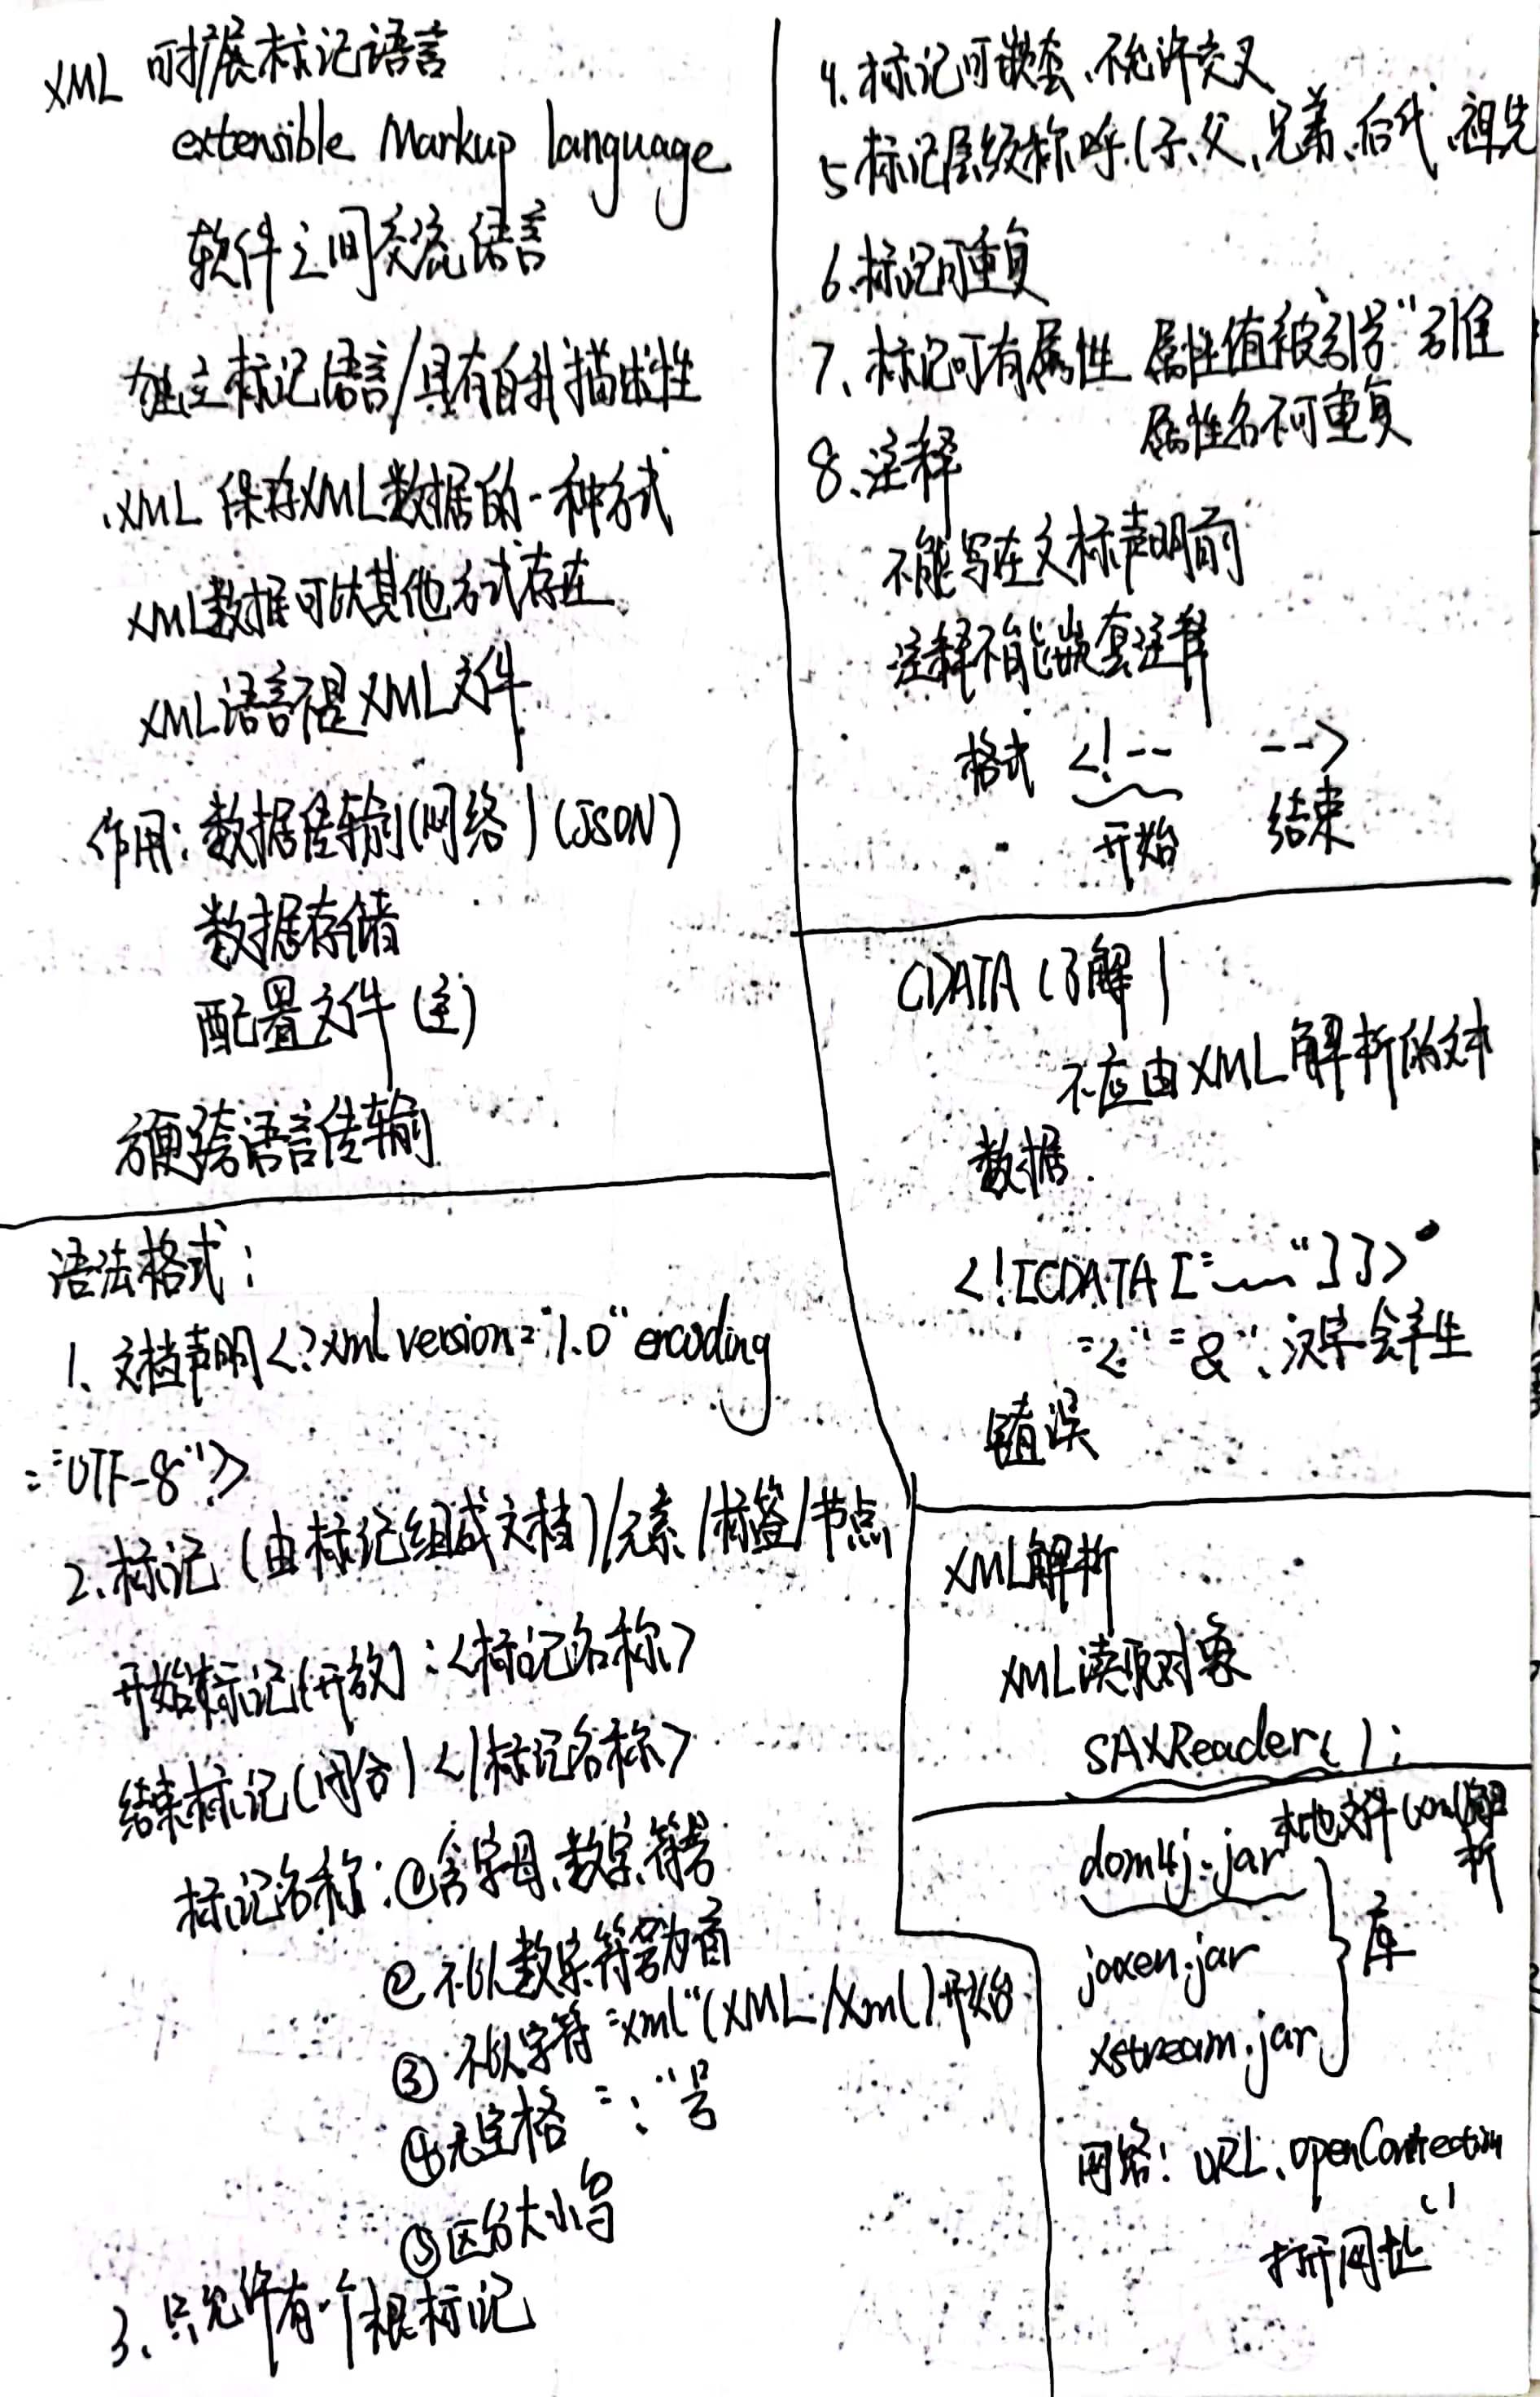 XML 可扩展标记语言
extensible Markup language
软件之间交流语言
独立标记语言/具有自我描述性
.XML 保存XML数据的一种方式
XML数据可以其他方式存在
XML语言不是XML文件
作用:数据传输(网络)(JSON)
数据存储
配置文件(主)
方便跨语言传输
语法格式:
1、文档声明<?xml version="1.0" encoding
="UTF-8"?>
2、标记(由标记组成文档)/元素/标签/节点
开始标记(开放):<标记名称>
结束标记(闭合)</标记名称>
标记名称:①含字母、数字、符号
②不以数字、符号为首
③不以字符"xml"(XML/Xml)开始
④无空格":"号
⑤区分大小写
3、只允许有一个根标记
4、标记可嵌套、不允许交叉
5、标记层级称呼(子、父、兄弟、后代、祖先
6、标记可重复
7、标记可有属性 属性值被引号"引住
属性名不可重复
8、注释
不能写在文档声明前
注释不能嵌套注释
格式 <!-- -->
开始 结束
CDATA(了解)
不应由XML解析的文本
数据
<![CDATA["~~"]]>
"<" "&"、汉字会产生
错误
XML解析
XML读取对象
SAXReader();
本地文件(xml解析
dom4j.jar
jaxen.jar
xstream.jar
库
网络:URL、openConnection
()
打开网址